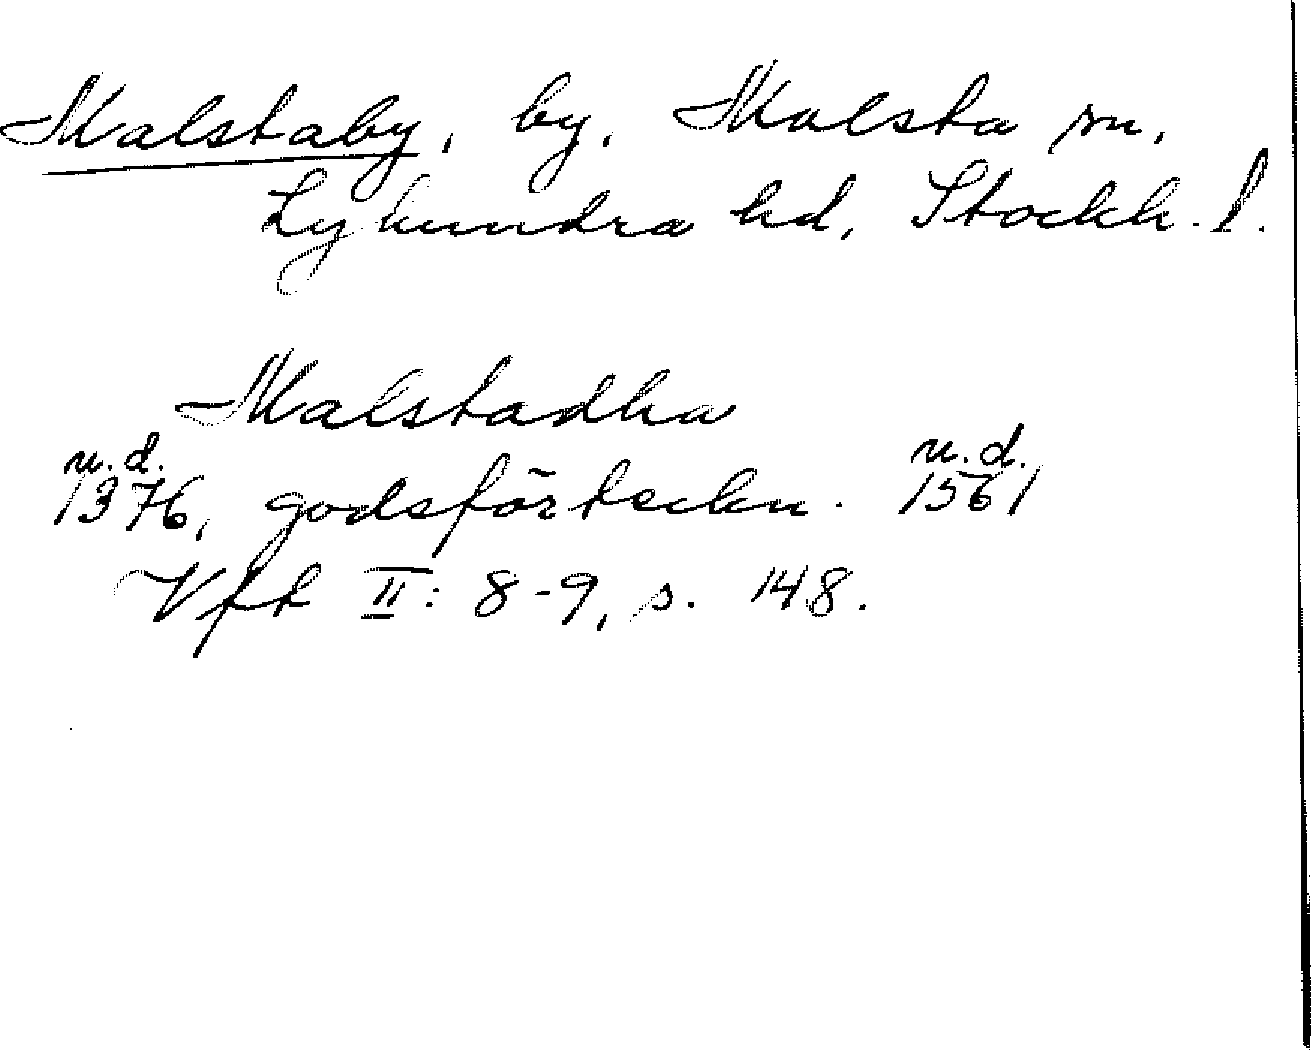 Malstaby, by, Malsta sn,
Lyhundra hd, Stockh. l.
Malstadha
u.d. u.d.
1376, godsförteckn. 1561
Vft II: 8-9, s. 148.